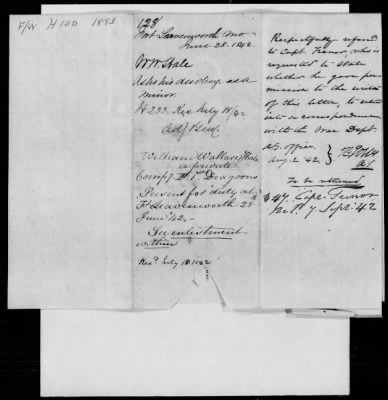 F/W H 100 1843
123
Fort Leavenworth Mo
June 28. 1842.
W W Hale
Asks his discharge as a
minor
H 233. Rec July 18/42
William Wallace Hale
a private
Comp 1st Dragoons
Present for duty at
Ft Leavenworth 28th
June 42,-
See enlistment
within
Recd July 18. 1842
Respectfully referred
to Capt. who is
requested to state
whether he gave per-
mission to the writer
of this letter, to enter
into a correspondence
with the War Dept.
A.G. office
Aug. 2 42.
To be returned
Capt.
7 Sept. 42